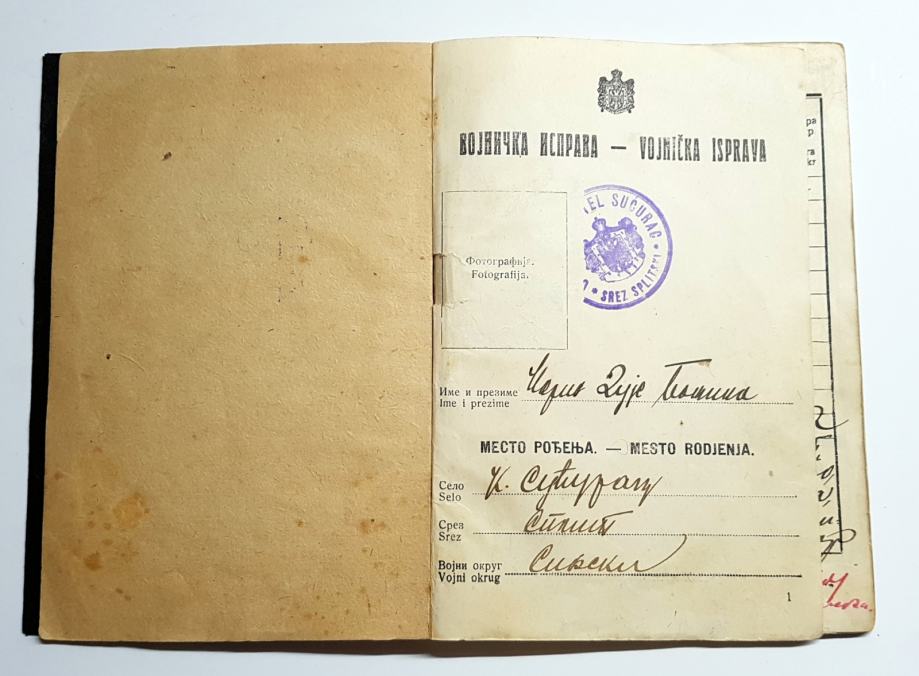 ВОЈНИЧКА ИСПРАВА — VOJNIČKA ISPRAVA
TEL SUĆURAC
* SREZ SPLITSKI *
Фотографија.
Fotografija.
Име и презиме
Ime i prezime
МЕСТО РОЂЕЊА. — MESTO RODJENJA.
Село К. Сућурац
Selo
Срез Сплит
Srez
Војни округ Сињски
Vojni okrug
1